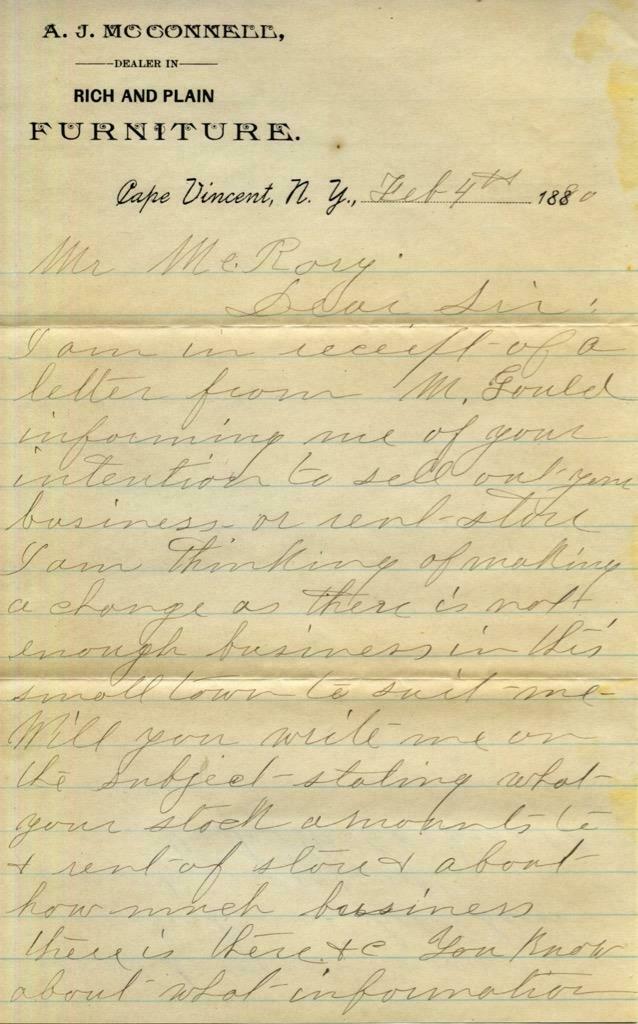 A. J. McCONNELL,
DEALER IN
RICH AND PLAIN
FURNITURE.
Cape Vincent, N. Y., Feb 4th 1880
Mr McRory.
Dear Sir:
I am in receipt of a
letter from M. Gould
informing me of your
intention to sell out your
business or rent store
I am thinking of making
a change as there is not
enough business in this
small town to suit me
Will you write me on
the subject stating what
your stock amounts to
& rent of store & about
how much business
there is there &c You know
about what information